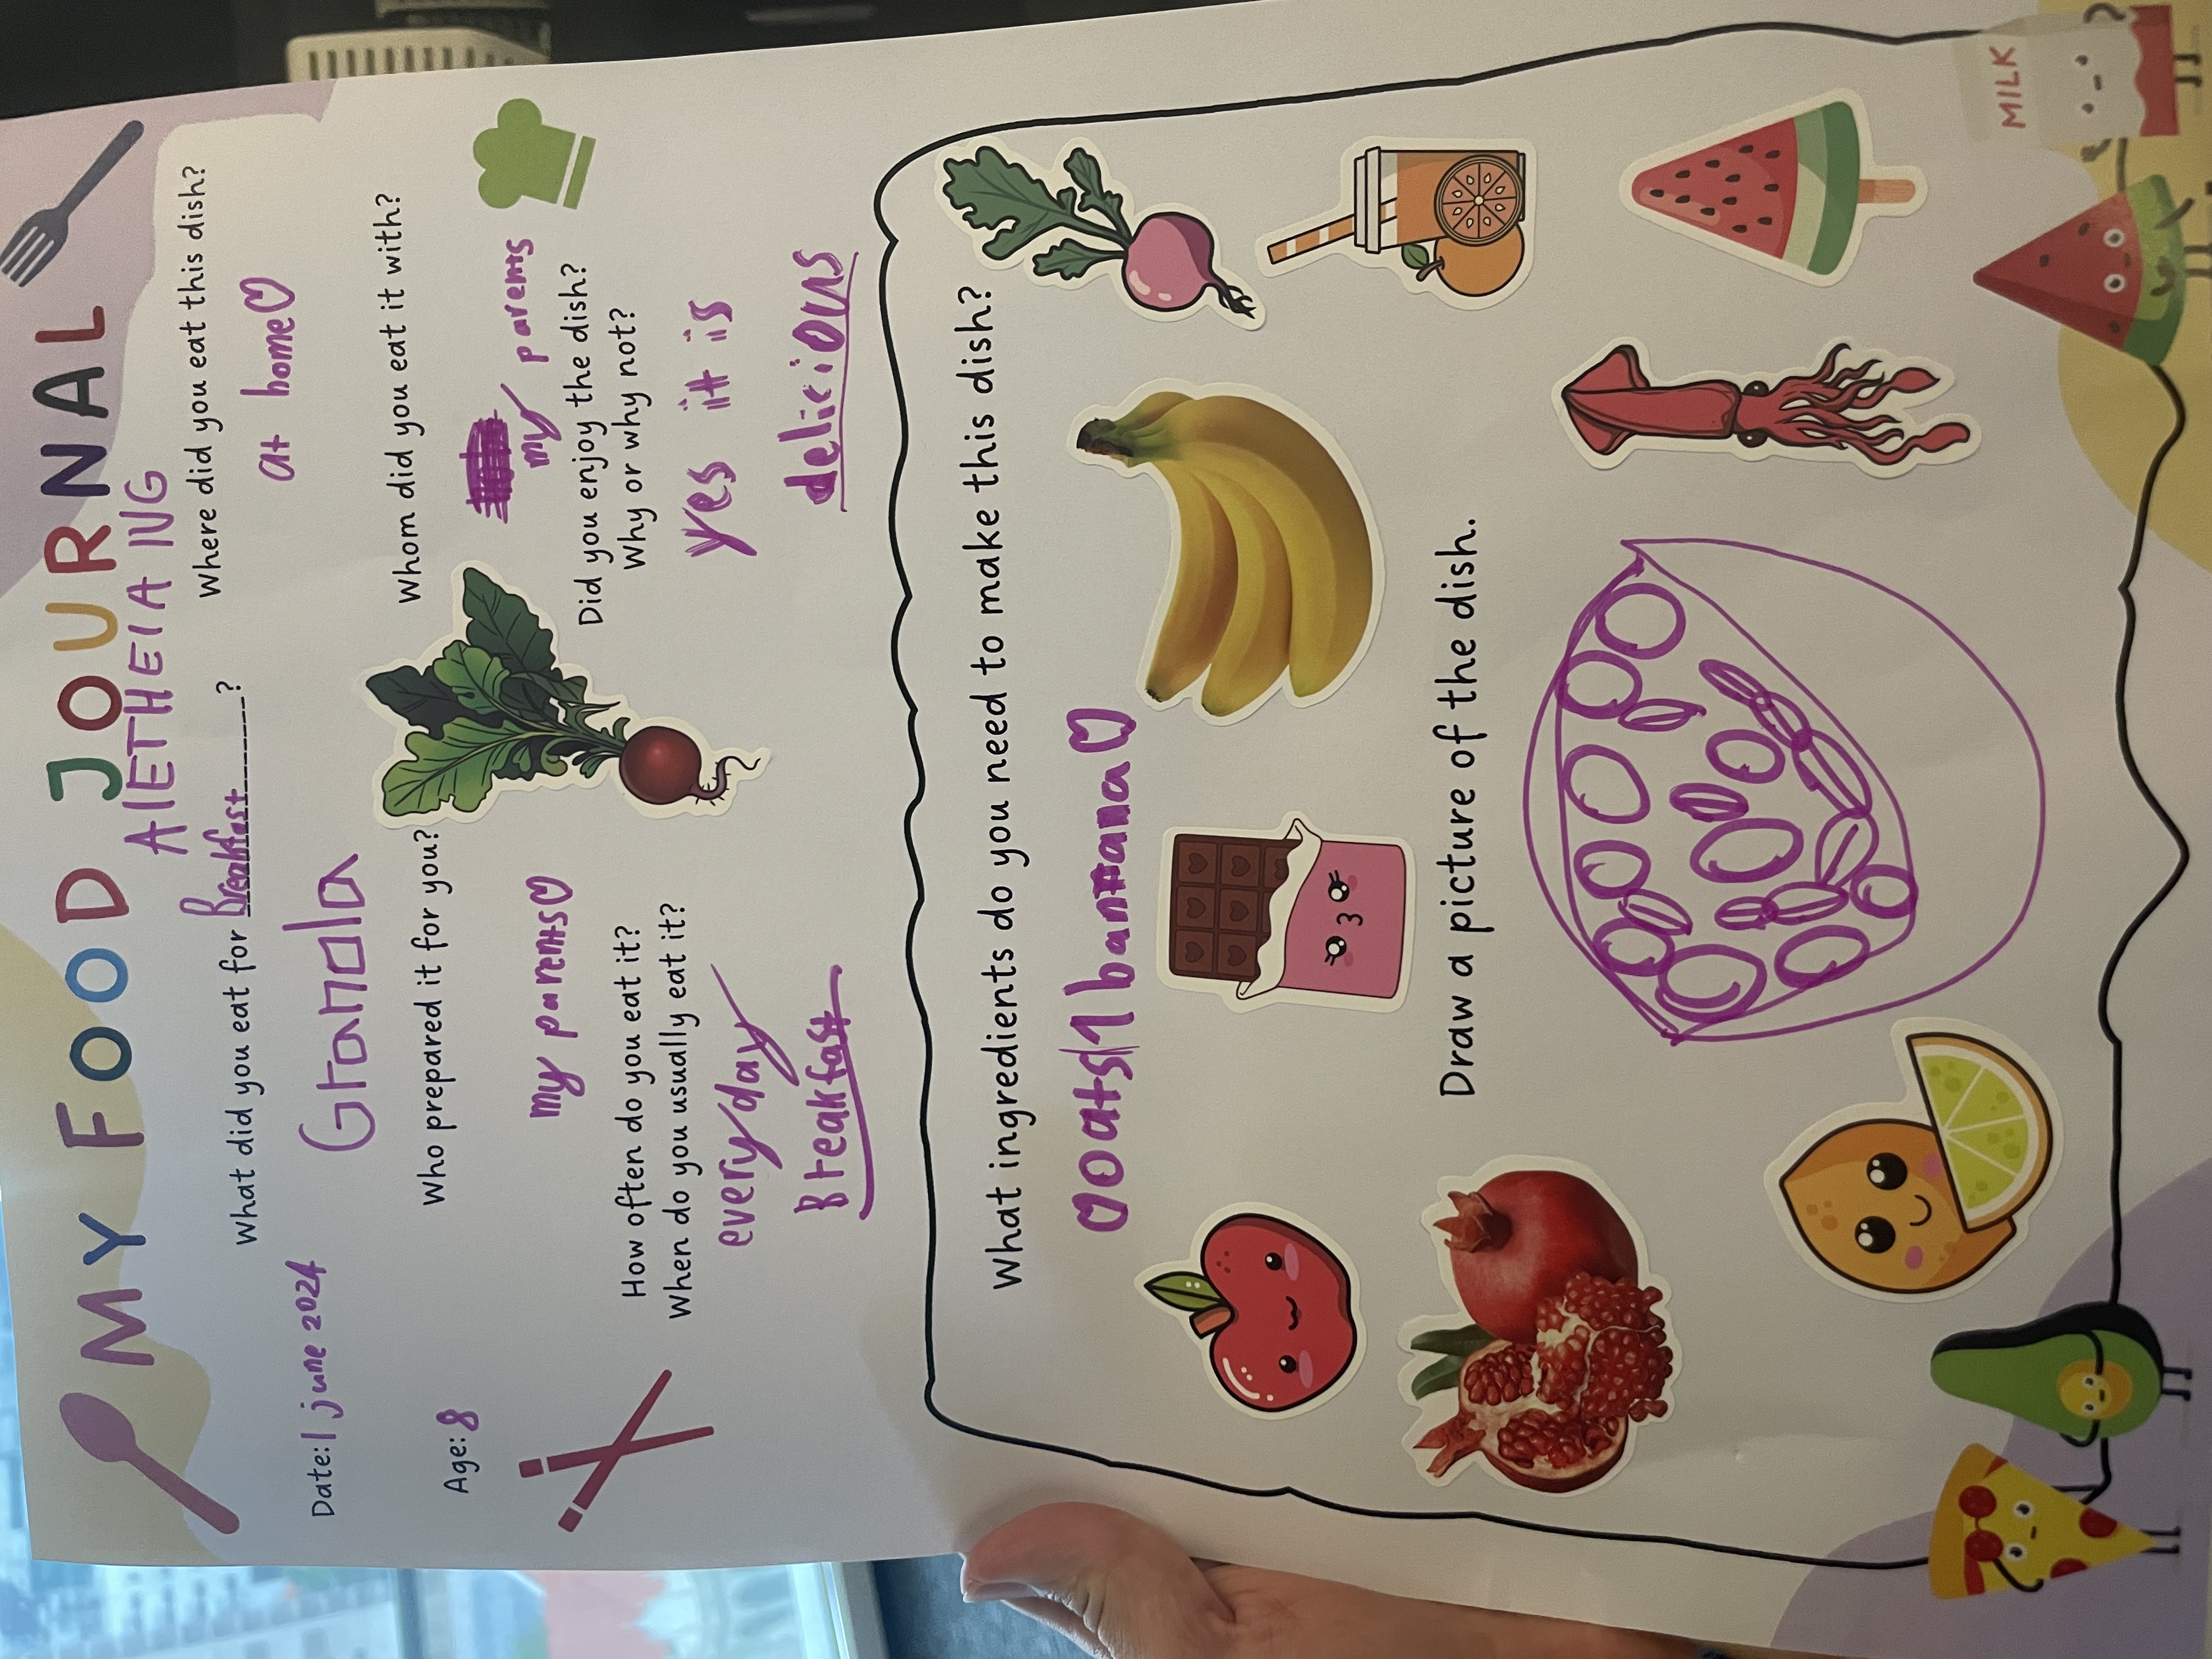 MY FOOD JOURNAL
AlETHEIA NG
Date: 1 june 2024
Age: 8
What did you eat for Breakfast?
Granola
Who prepared it for you?
my parents♡
How often do you eat it?
When do you usually eat it?
everyday
Breakfast
Where did you eat this dish?
at home♡
Whom did you eat it with?
my parents
Did you enjoy the dish?
Why or why not?
yes it is
delicious
What ingredients do you need to make this dish?
♡oats/1 bannana♡
Draw a picture of the dish.
MILK